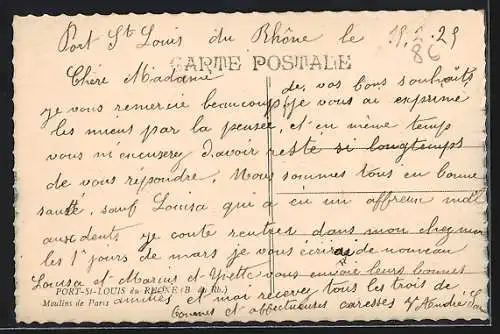 Port St Louis du Rhône le
86
CARTE POSTALE
Chère Madame
je vous remercie beaucoup de vos bons souhaits
je vous ai exprimé
les miens par la pensée, et en même temps
vous m'excuserez d'avoir resté si longtemps
de vous répondre. Nous sommes tous en bonne
santé, sauf Louisa qui a eu un affreux mal
aux dents je compte rentrer dans mon chez moi
les 1er jours de mars je vous écrirai de nouveau
Louisa et Marius et Yvette vous envoie leurs bonnes
PORT-St-LOUIS du RHÔNE (B. du Rh.)
Moulins de Paris
amitiés et moi recevez tous les trois de
bonnes et affectueuses caresses Vve André